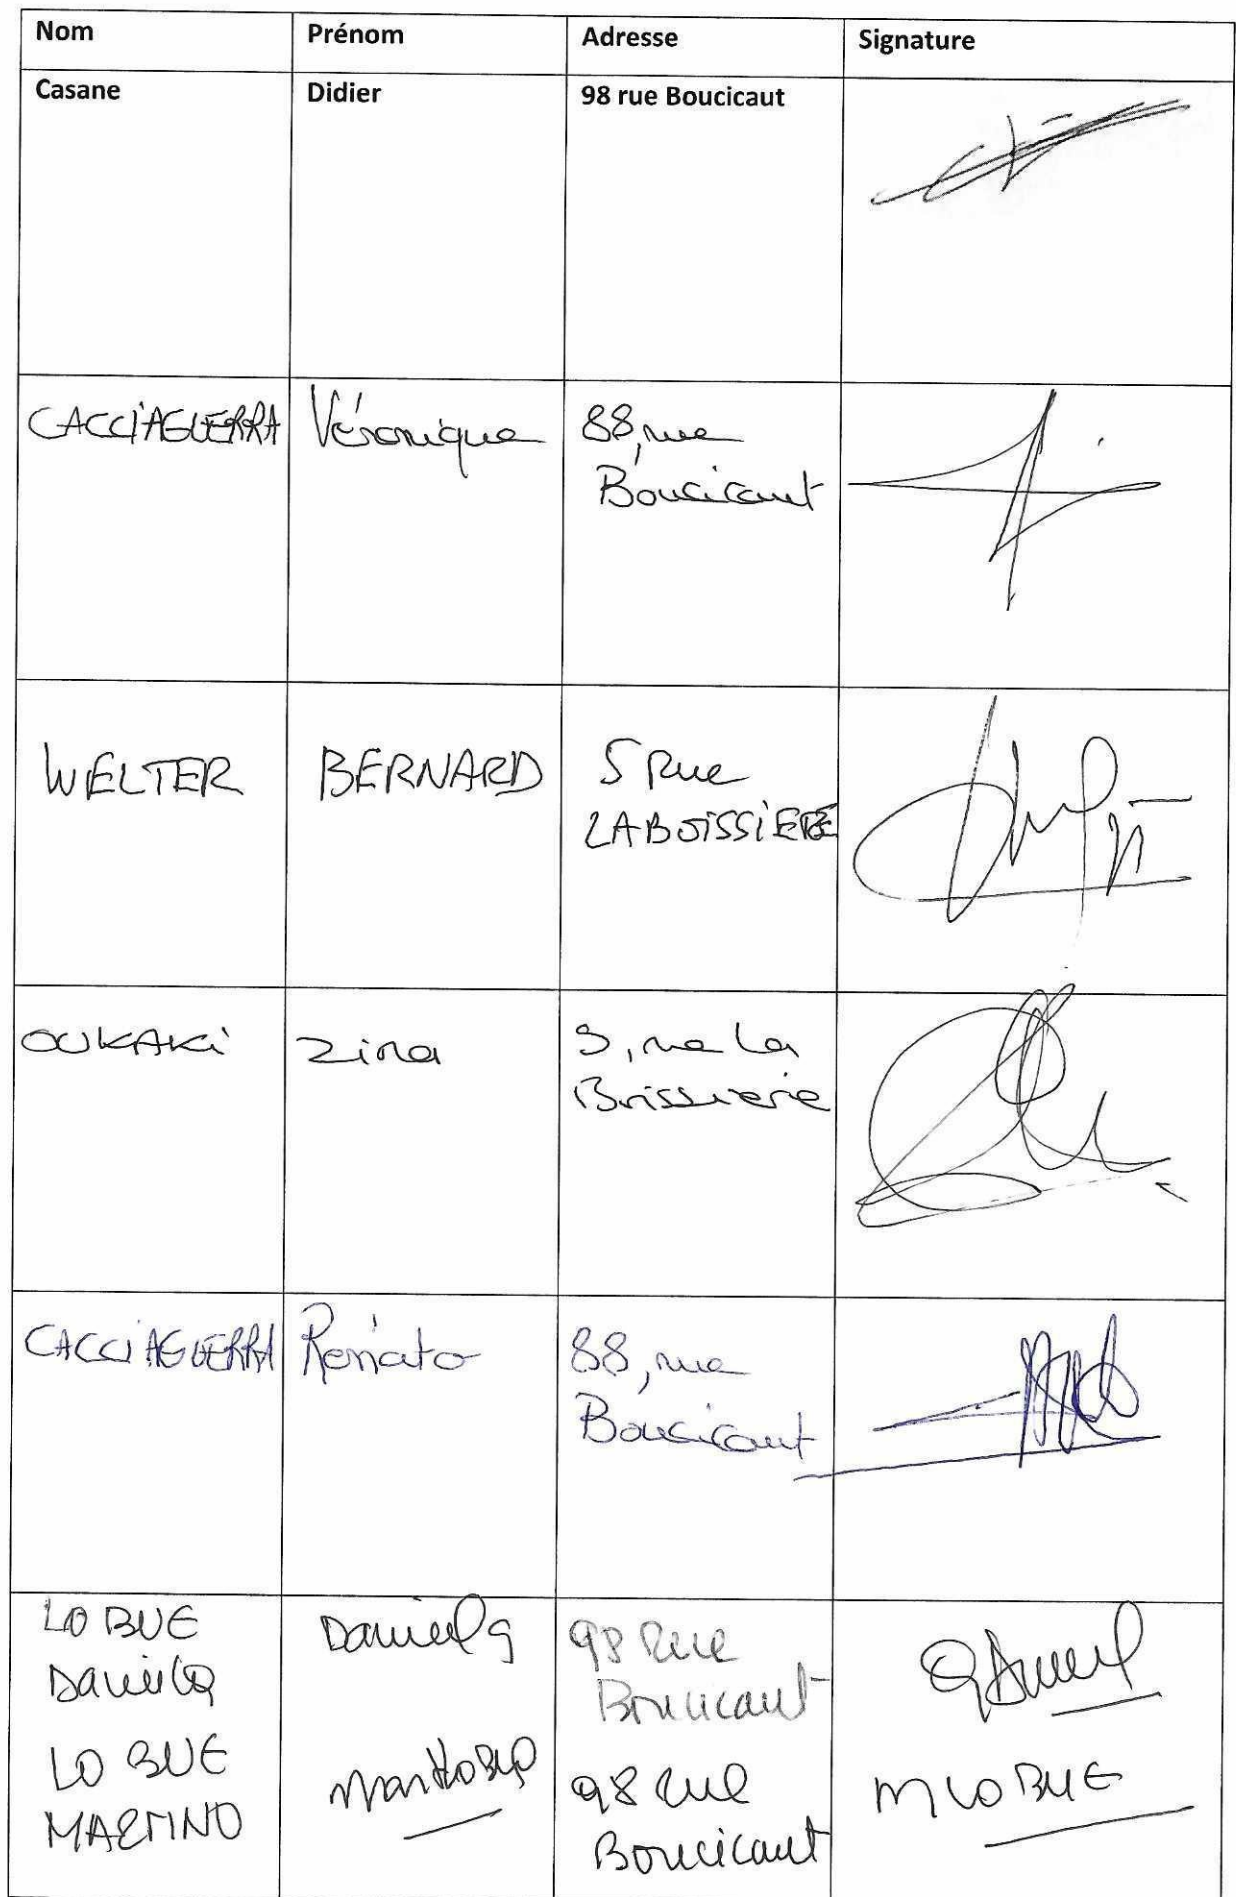 Nom Prénom Adresse Signature
Casane Didier 98 rue Boucicaut
CACCIAGUERRA Véronique 88, rue
Boucicaut
WELTER BERNARD 5 Rue
LABOISSIERE
OUKAKI Zina 9, rue La
Boissiere
CACCIAGUERRA Renato 88, rue
Boucicaut
LO BUE Daniela 98 Rue
Daniela Boucicaut
LO BUE 98 Rue M LO BUE
MARTINO Boucicaut